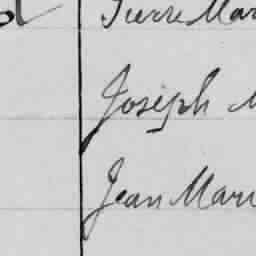 Pierre Mar
Joseph M
Jean Mari